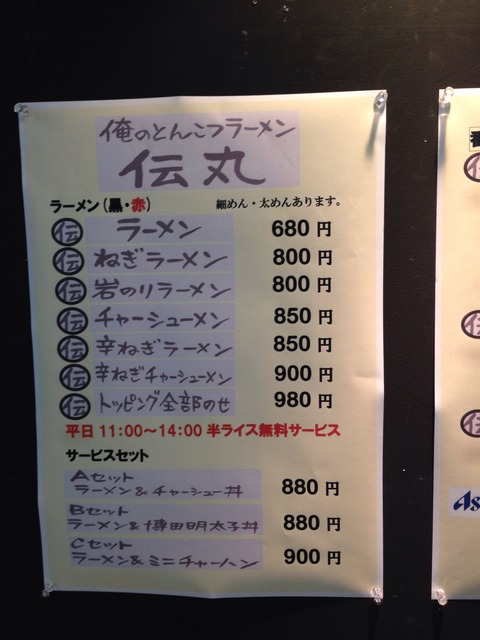 俺のとんこつラーメン
伝丸
ラーメン(黒・赤) 細めん・太めんあります。
伝 ラーメン 680円
伝 ねぎラーメン 800円
伝 岩のりラーメン 800円
伝 チャーシューメン 850円
伝 辛ねぎラーメン 850円
伝 辛ねぎチャーシューメン 900円
伝 トッピング全部のせ 980円
平日 11:00〜14:00 半ライス無料サービス
サービスセット
Aセット
ラーメン&チャーシュー丼 880円
Bセット
ラーメン&博田明太子丼 880円
Cセット
ラーメン&ミニチャーハン 900円
伝
伝
伝
As